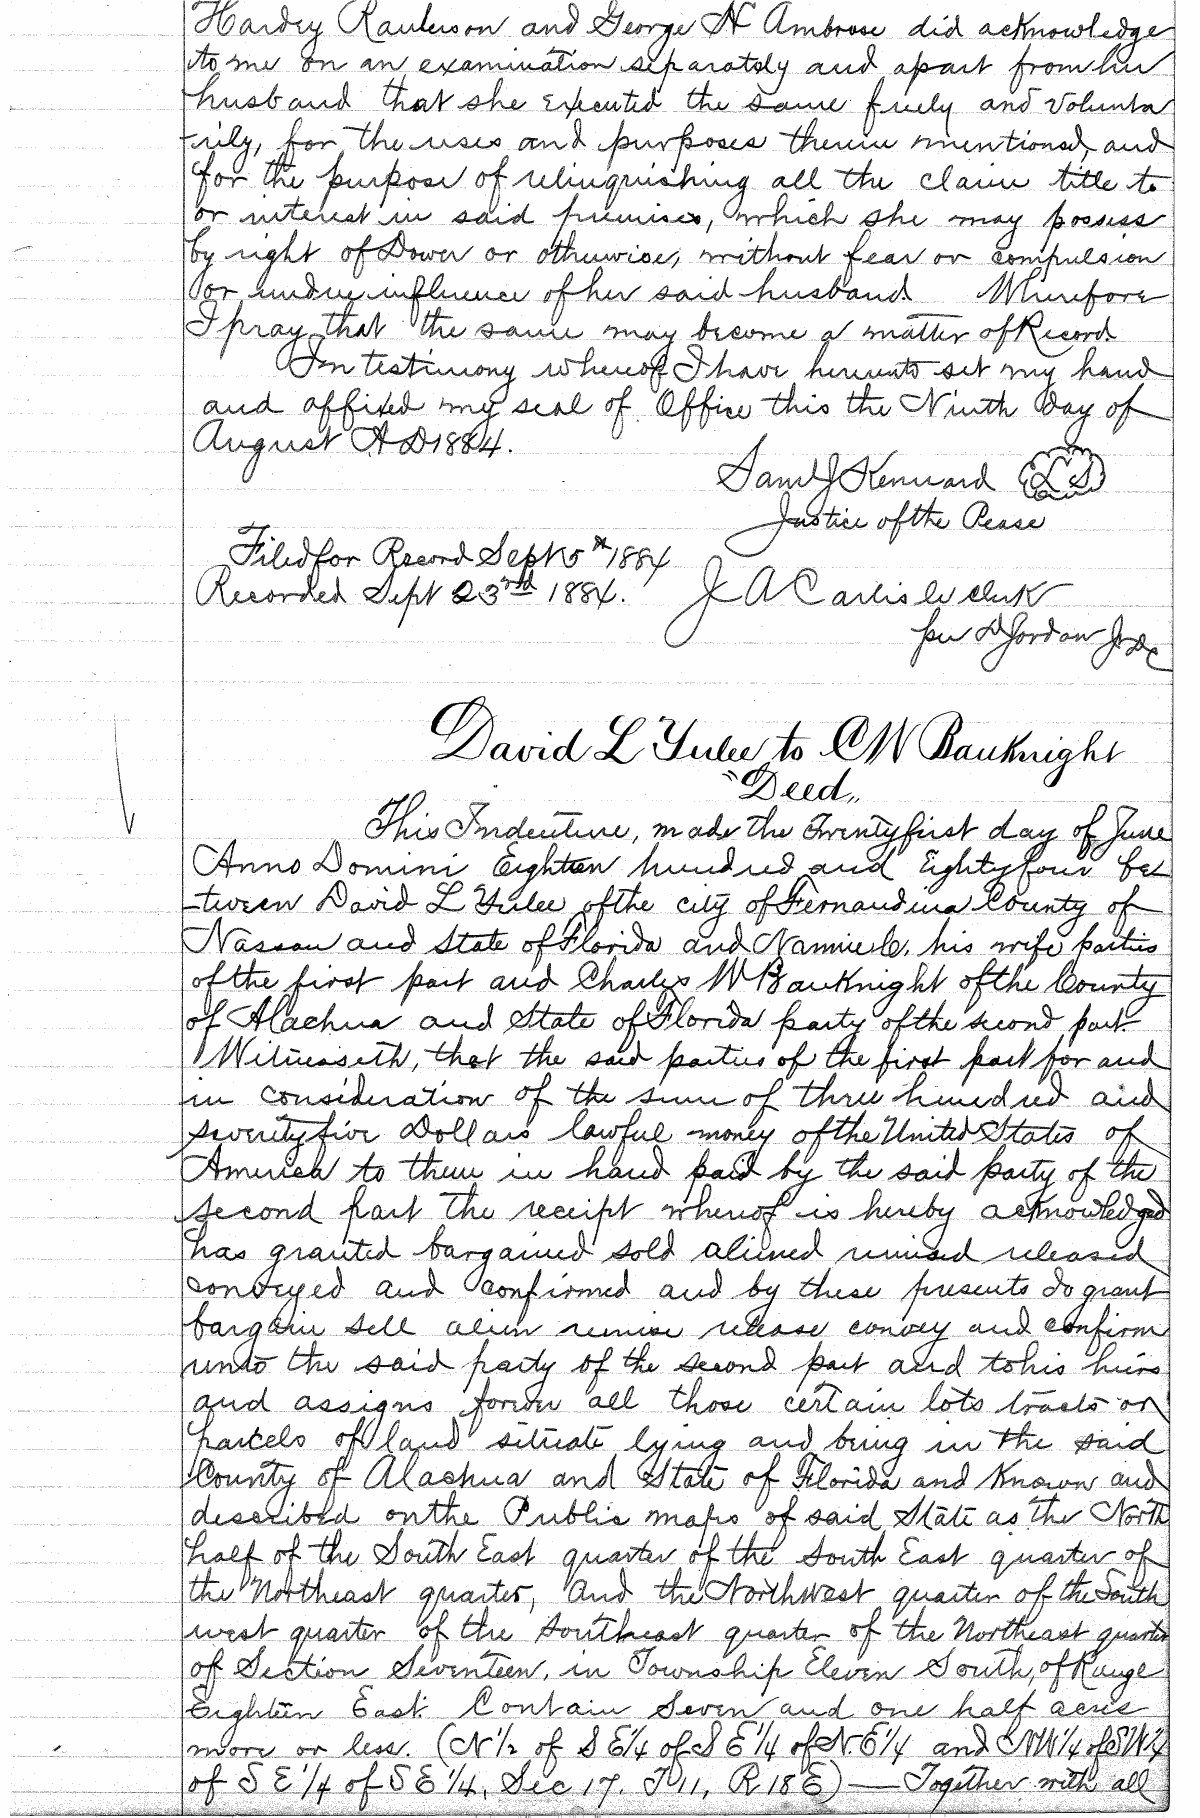 Hardey Raulerson and George N Ambrose did acknowledge
to me on an examination separately and apart from her
husband that she executed the same freely and volunta
-rily, for the uses and purposes therein mentioned, and
for the purpose of relinquishing all the claim title to
or interest in said premises, which she may possess
by right of Dower or otherwise, without fear or compulsion
or undue influence of her said husband. Wherefore
I pray that the same may become a matter of Record.
In testimony whereof I have hereunto set my hand
and affixed my seal of Office this the Ninth Day of
August A D 1884.
Saml J Kennard L S
Justice of the Pease
Filed for Record Sept 5th 1884
Recorded Sept 23rd 1884. J A Carlisle clerk
per D Jordan Jr D c
David L Yulee to C W Bauknight
"Deed"
This Indenture, made the Twentyfirst day of June
Anno Domini Eighteen hundred and Eightyfour be
-tween David L Yulee of the city of Fernandina County of
Nassau and State of Florida and Nannie C. his wife parties
of the first part and Charles W Bauknight of the County
of Alachua and State of Florida party of the second part.
Witnesseth, that the said parties of the first part for and
in consideration of the sum of three hundred and
seventyfive Dollars lawful money of the United States of
America to them in hand paid by the said party of the
second part the receipt whereof is hereby acknowledged
has granted bargained sold aliened remised released
conveyed and confirmed and by these presents do grant
bargain sell alien remise release convey and confirm
unto the said party of the second part and to his heirs
and assigns forever all those certain lots tracts or
parcels of land situate lying and being in the said
County of Alachua and State of Florida and Known and
described on the Public maps of said State as the North
half of the South East quarter of the South East quarter of
the Northeast quarter, and the Northwest quarter of the South
west quarter of the Southeast quarter of the Northeast quarter
of Section Seventeen, in Township Eleven South, of Range
Eighteen East. Contain Seven and one half acres
more or less. (N 1/2 of S E 1/4 of S E 1/4 of N. E 1/4 and N W 1/4 of S W 1/4
of S E 1/4 of S E 1/4, Sec 17. T 11, R 18 E) — Together with all